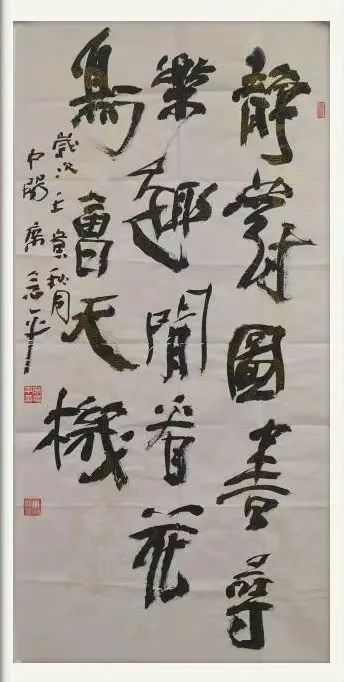 靜對圖書尋
樂趣閒看花
鳥會天機
歲次壬寅秋月
中陽